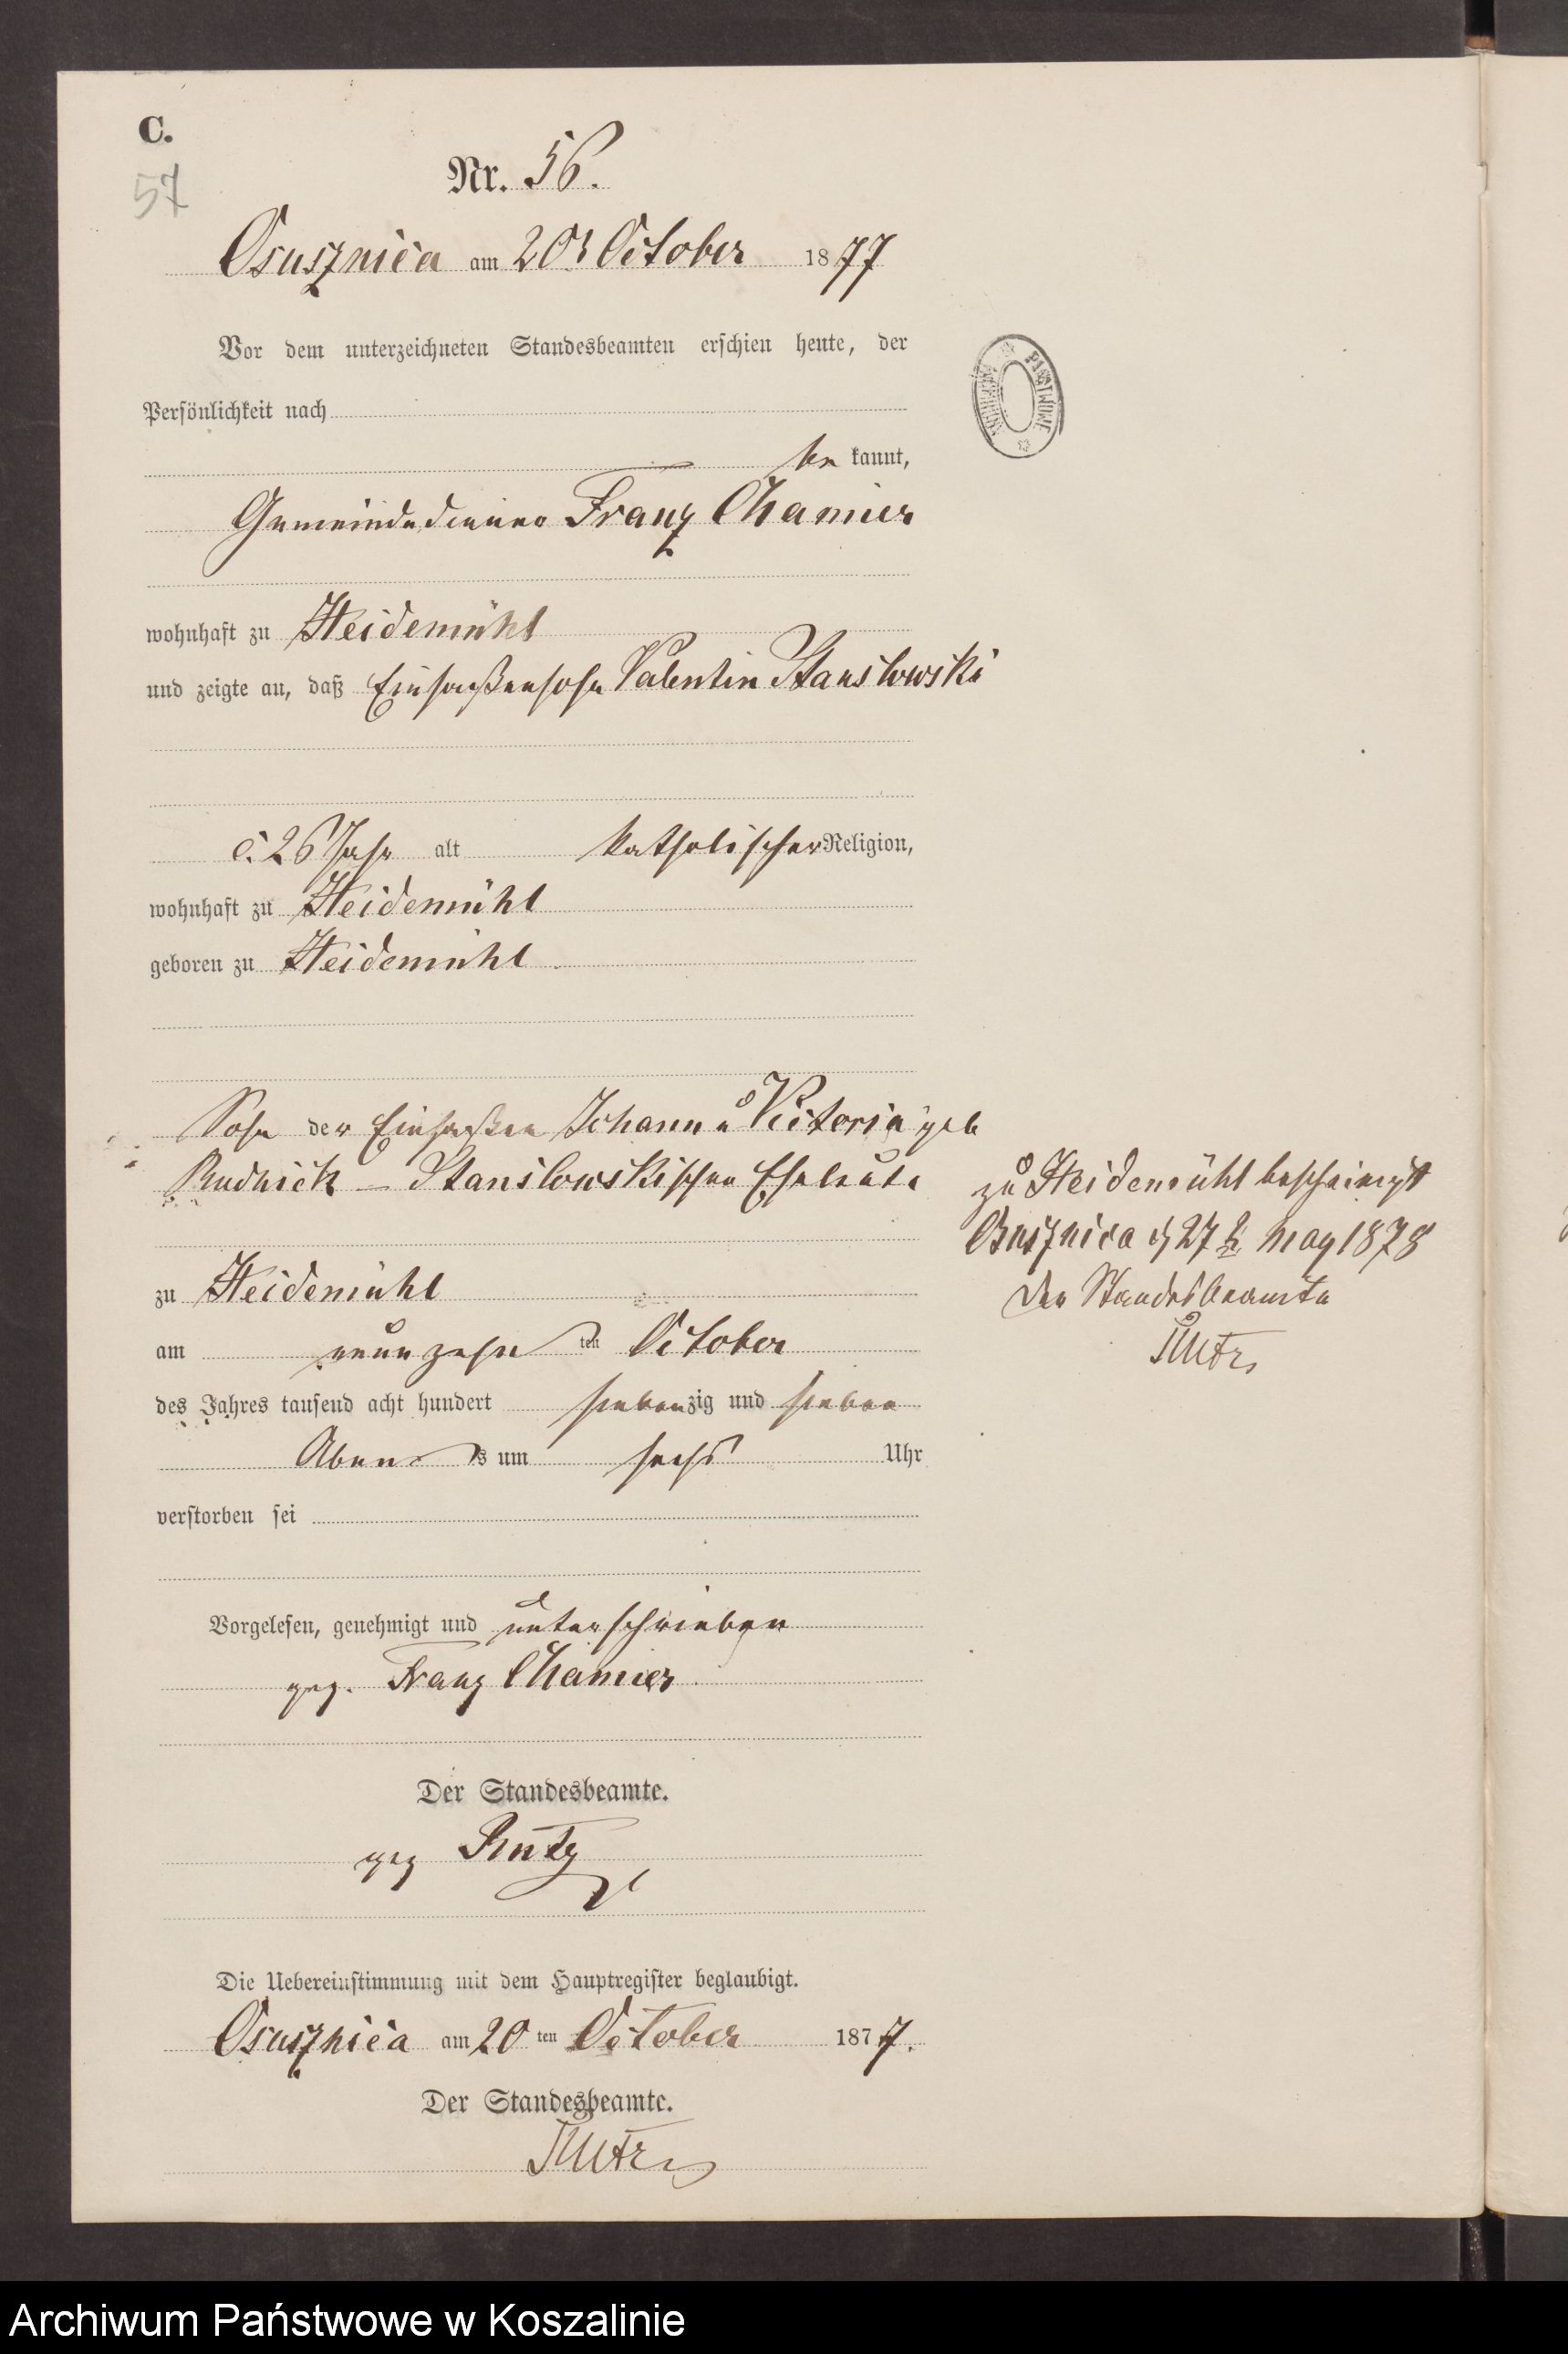 C.
57
Nr. 56.
Osusznica am 20t October 1877
Vor dem unterzeichneten Standesbeamten erschien heute, der
Persönlichkeit nach
be kannt,
Gemeindediener Franz Chamier
wohnhaft zu Heidemühl
und zeigte an, daß Einsaßensohn Valentin Stanslowski
c. 26 Jahr alt katholischer Religion,
wohnhaft zu Heidemühl
geboren zu Heidemühl
Sohn der Einsaßen Johann u Victoria geb
Rudnick – Stanslowskischen Eheleute
zu Heidemühl bescheinigt
Osusznica 27 May 1878
Der Standesbeamte
zu Heidemühl
am neunzehn ten October
des Jahres tausend acht hundert siebenzig und sieben
Abends um sechs Uhr
verstorben sei
Vorgelesen, genehmigt und unterschrieben
gez. Franz Chamier
Der Standesbeamte.
gez
Die Uebereinstimmung mit dem Hauptregister beglaubigt.
Osusznica am 20 ten October 1877.
Der Standesbeamte.
ARCHIWUM PAŃSTWOWE
Archiwum Państwowe w Koszalinie